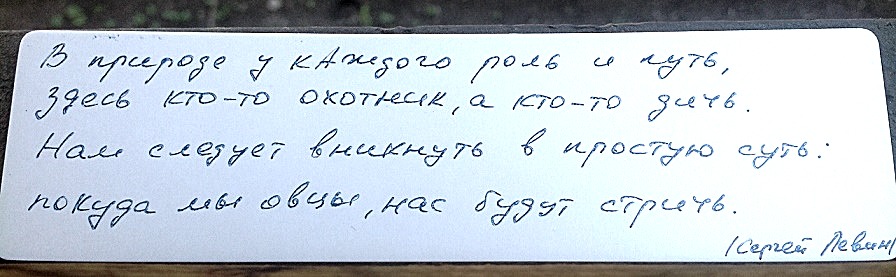 В природе у кАждого роль и путь,
здесь кто-то охотник, а кто-то дичь.
Нам следует вникнуть в простую суть:
покуда мы овцы, нас будут стричь.
/Сергей Левин/